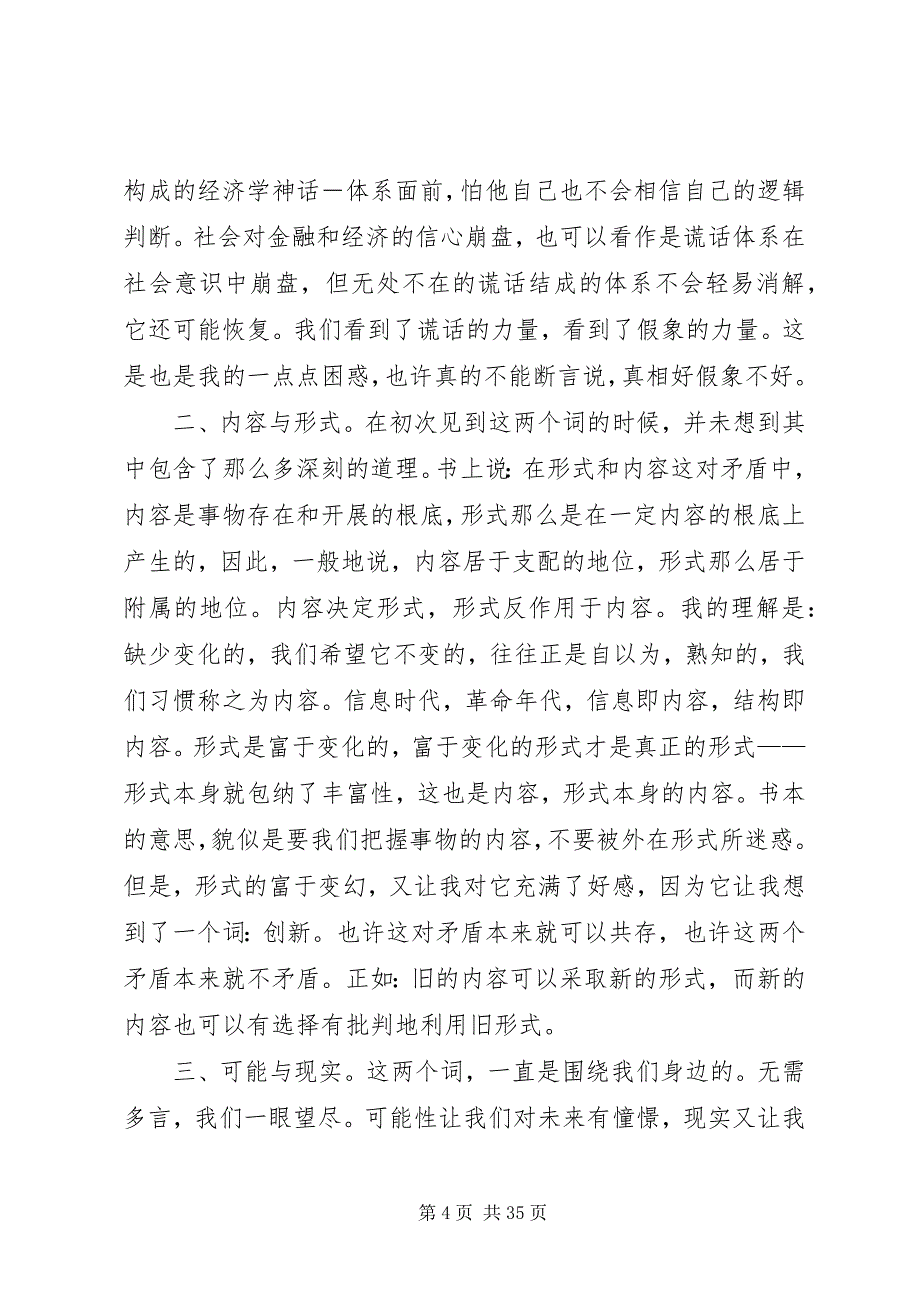 构成的经济学神话－体系面前，怕他自己也不会相信自己的逻辑
判断。社会对金融和经济的信心崩盘，也可以看作是谎话体系在
社会意识中崩盘，但无处不在的谎话结成的体系不会轻易消解，
它还可能恢复。我们看到了谎话的力量，看到了假象的力量。这
是也是我的一点点困惑，也许真的不能断言说，真相好假象不好。
二、内容与形式。在初次见到这两个词的时候，并未想到其
中包含了那么多深刻的道理。书上说：在形式和内容这对矛盾中，
内容是事物存在和开展的根底，形式那么是在一定内容的根底上
产生的，因此，一般地说，内容居于支配的地位，形式那么居于
附属的地位。内容决定形式，形式反作用于内容。我的理解是：
缺少变化的，我们希望它不变的，往往正是自以为，熟知的，我
们习惯称之为内容。信息时代，革命年代，信息即内容，结构即
内容。形式是富于变化的，富于变化的形式才是真正的形式——
形式本身就包纳了丰富性，这也是内容，形式本身的内容。书本
的意思，貌似是要我们把握事物的内容，不要被外在形式所迷惑。
但是，形式的富于变幻，又让我对它充满了好感，因为它让我想
到了一个词：创新。也许这对矛盾本来就可以共存，也许这两个
矛盾本来就不矛盾。正如：旧的内容可以采取新的形式，而新的
内容也可以有选择有批判地利用旧形式。
三、可能与现实。这两个词，一直是围绕我们身边的。无需
多言，我们一眼望尽。可能性让我们对未来有憧憬，现实又让我
第 4 页 共 35 页